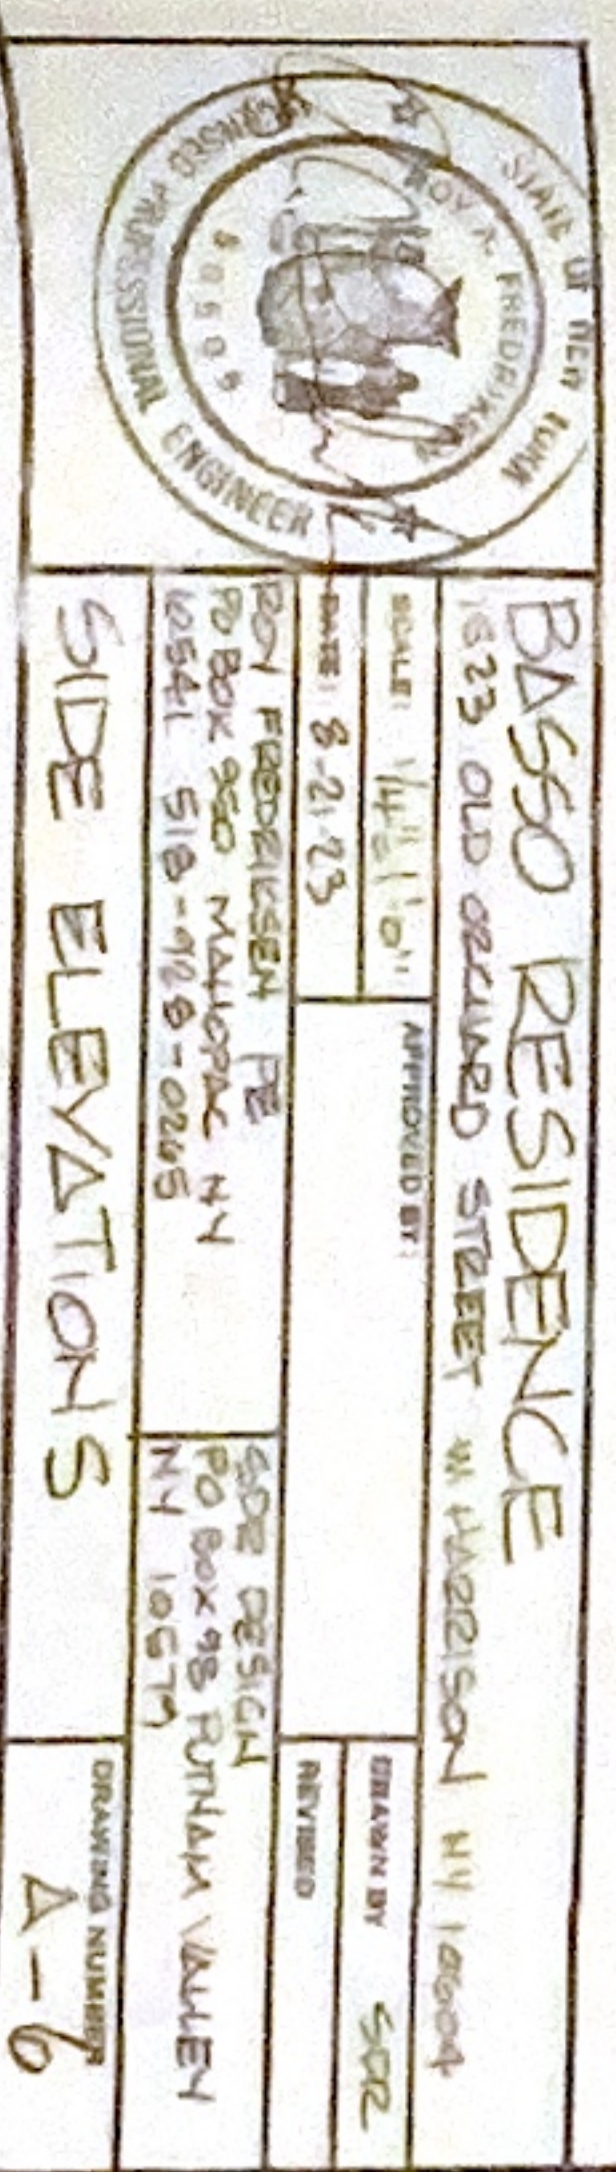 STATE OF NEW YORK
ROY A. FREDRIKSEN
LICENSED PROFESSIONAL ENGINEER
BASSO RESIDENCE
1523 OLD ORCHARD STREET W. HARRISON NY 10604
SCALE: 1/4"=1'0"
APPROVED BY:
DRAWN BY SDR
DATE: 8-21-23
REVISED
ROY FREDRIKSEN PE
PO BOX 950 MAHOPAC NY
10541
SDR DESIGN
PO BOX 98 PUTNAM VALLEY
NY 10579
SIDE ELEVATIONS
DRAWING NUMBER
A-6